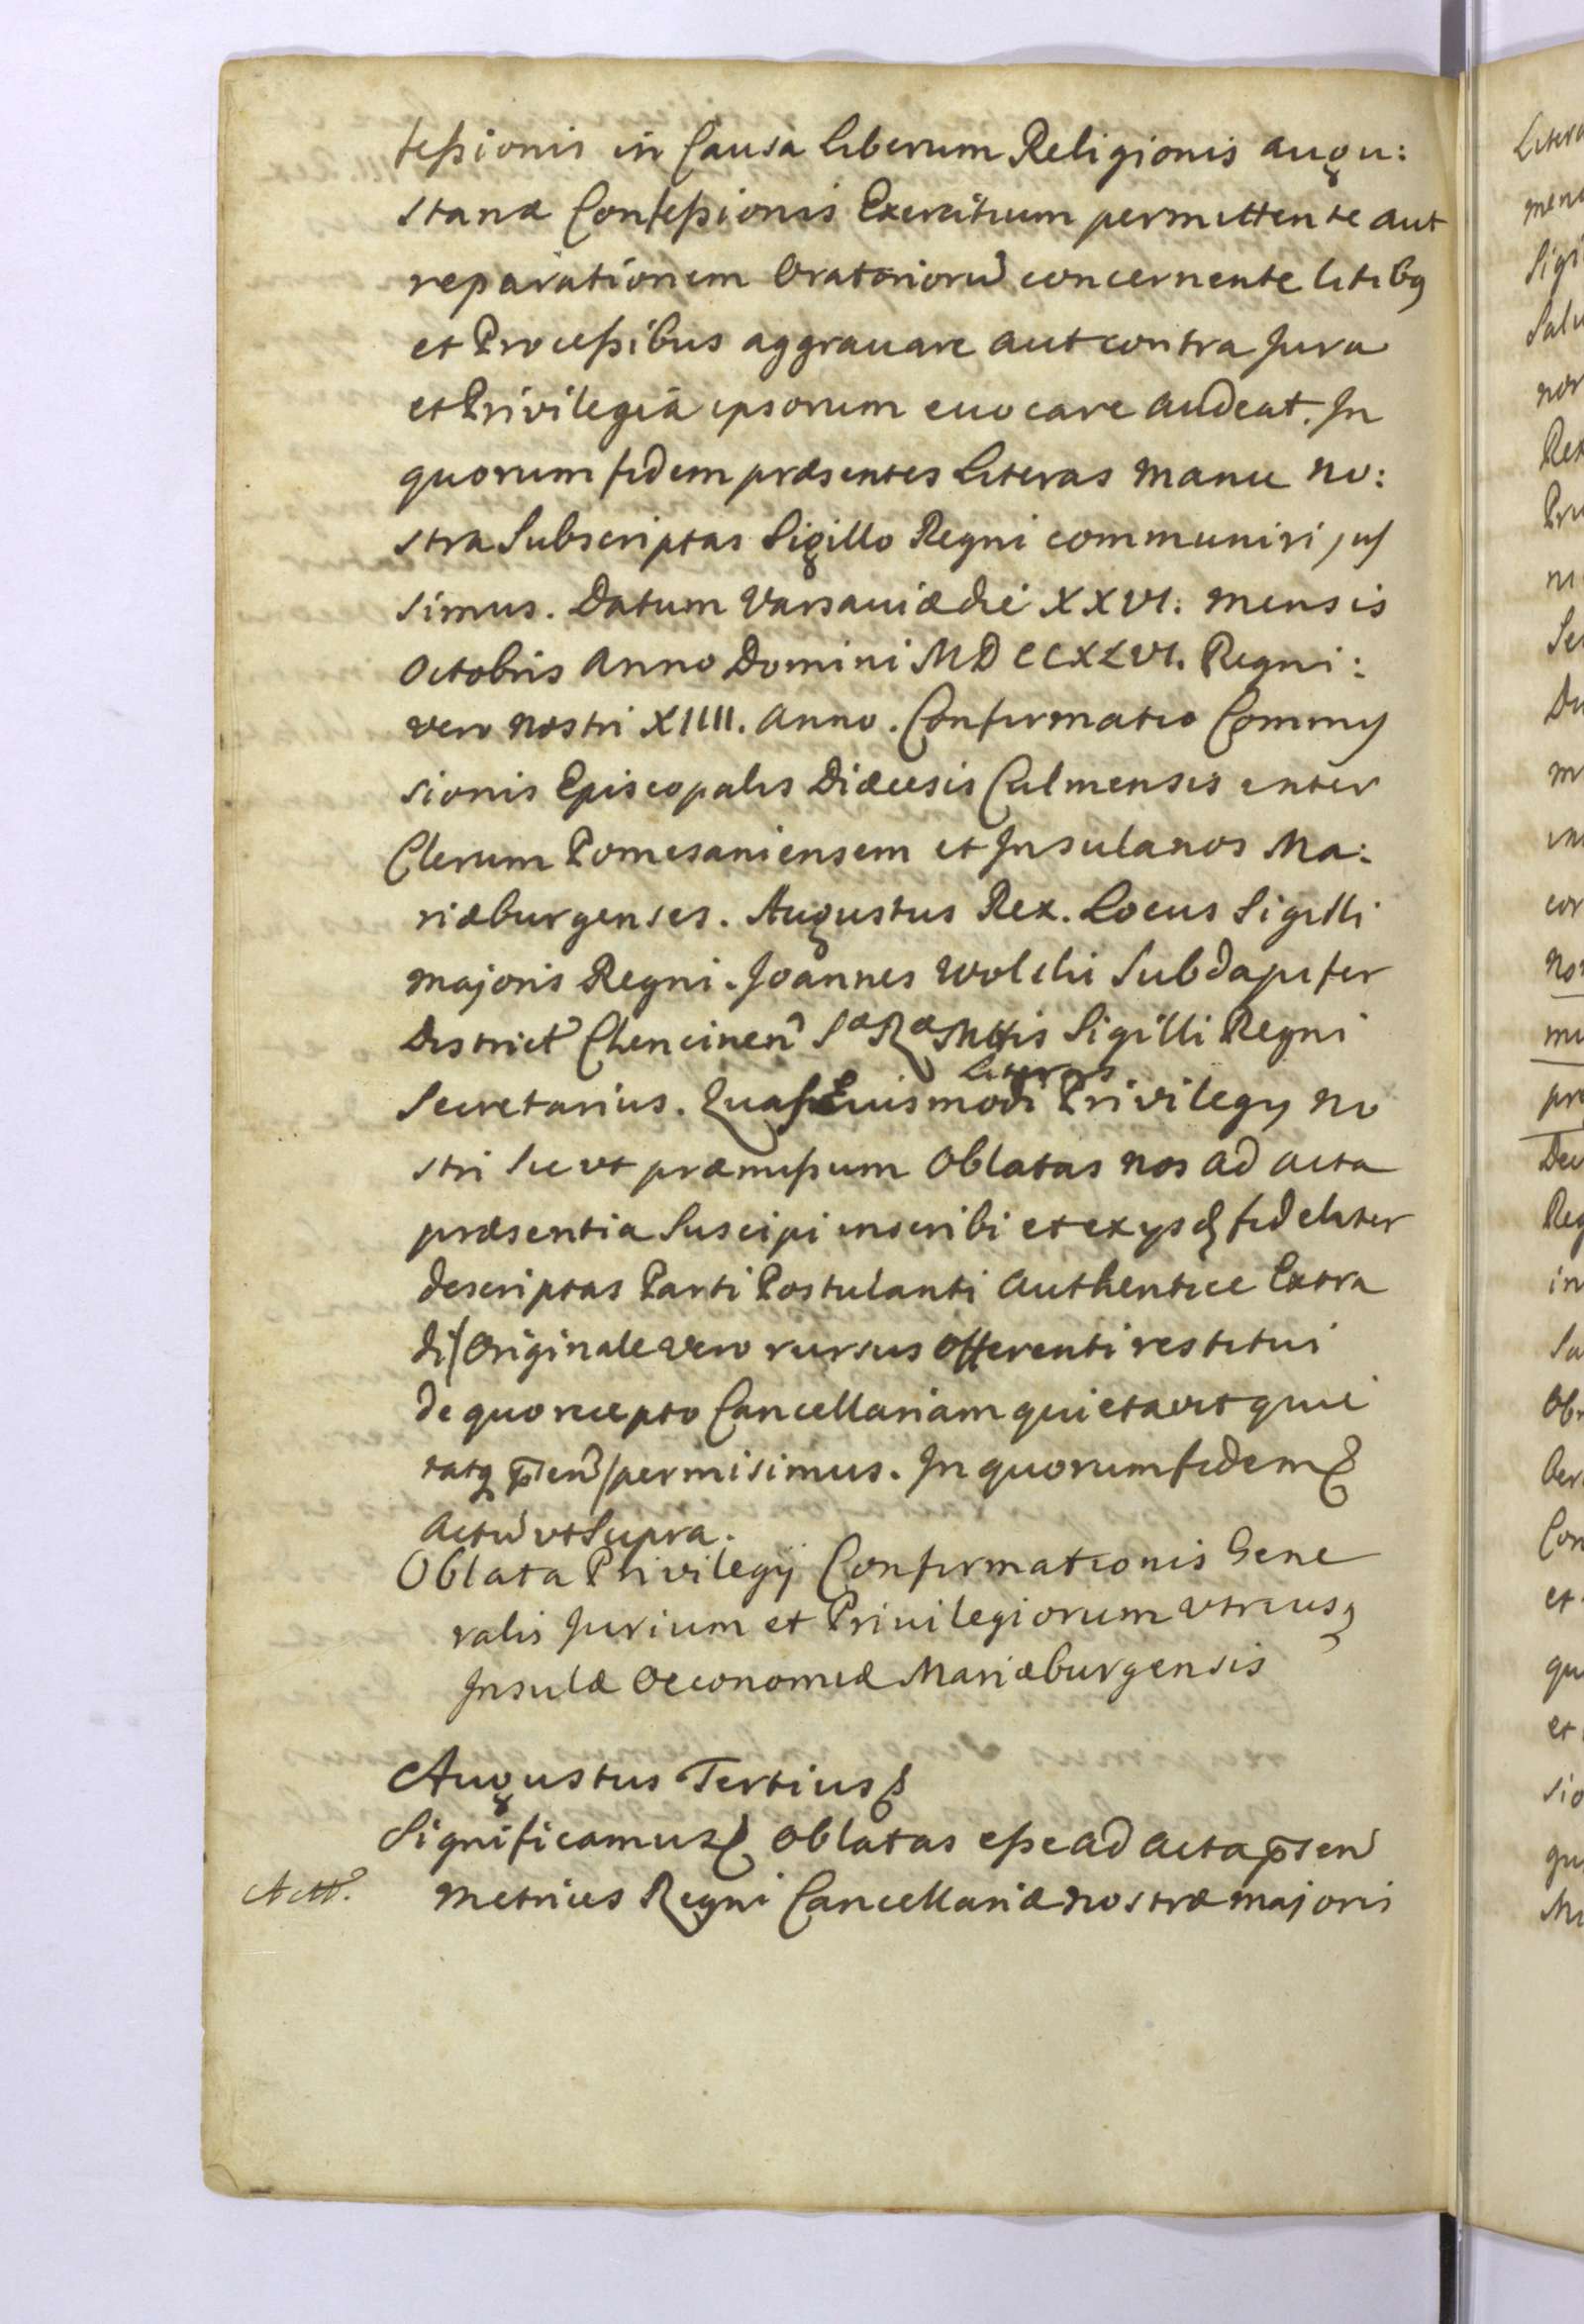 feßionis in Causa liberum Religionis augu:
stanæ Confeßionis Exercitium permittente aut
reparationem Oratorioru͂ concernente litibq
et Proceßibus aggrauare aut contra Jura
et Privilegia ipsorum euocare audeat. In
quorum fidem præsentes Literas manu no:
stra Subscriptas Sigillo Regni communiri jus
simus. Datum Varsauiæ die XXVI. mensis
Octobris Anno Domini MDCCXLVI. Regni:
vero nostri XIIII. Anno. Confirmatio Commis
sionis Episcopalis Diæcesis Culmensis inter
Clerum Pomesaniensem et Insulanos Ma:
riæburgenses. Augustus Rex. Locus Sigilli
majoris Regni. Joannes Wolski Subdapifer
District͂ Chencinen͂ Sæ Ræ Mttis Sigilli Regni
Literas
Secretarius. Quas Eiusmodi Privilegy no
stri sic ut præmißum Oblatas nos ad acta
præsentia Suscipi inscribi et ex ysdq fideliter
descriptas Parti Postulanti Authentice Extra
di/Originale vero rursus offerenti restitui
de quo recepto Cancellariam quietavit quie
tatq p͞sen͂/permisimus. In quorum fidem &
Actu͂ ut Supra.
Oblata Privilegij Confirmationis Gene
ralis Jurium et Priuilegiorum utriusq
Insulæ Oeconomiæ Mariæburgensis
Augustus Tertius &
Significamus & Oblatas eße ad acta p͞sen͂
metrices Regni Cancellariæ nostræ majoris